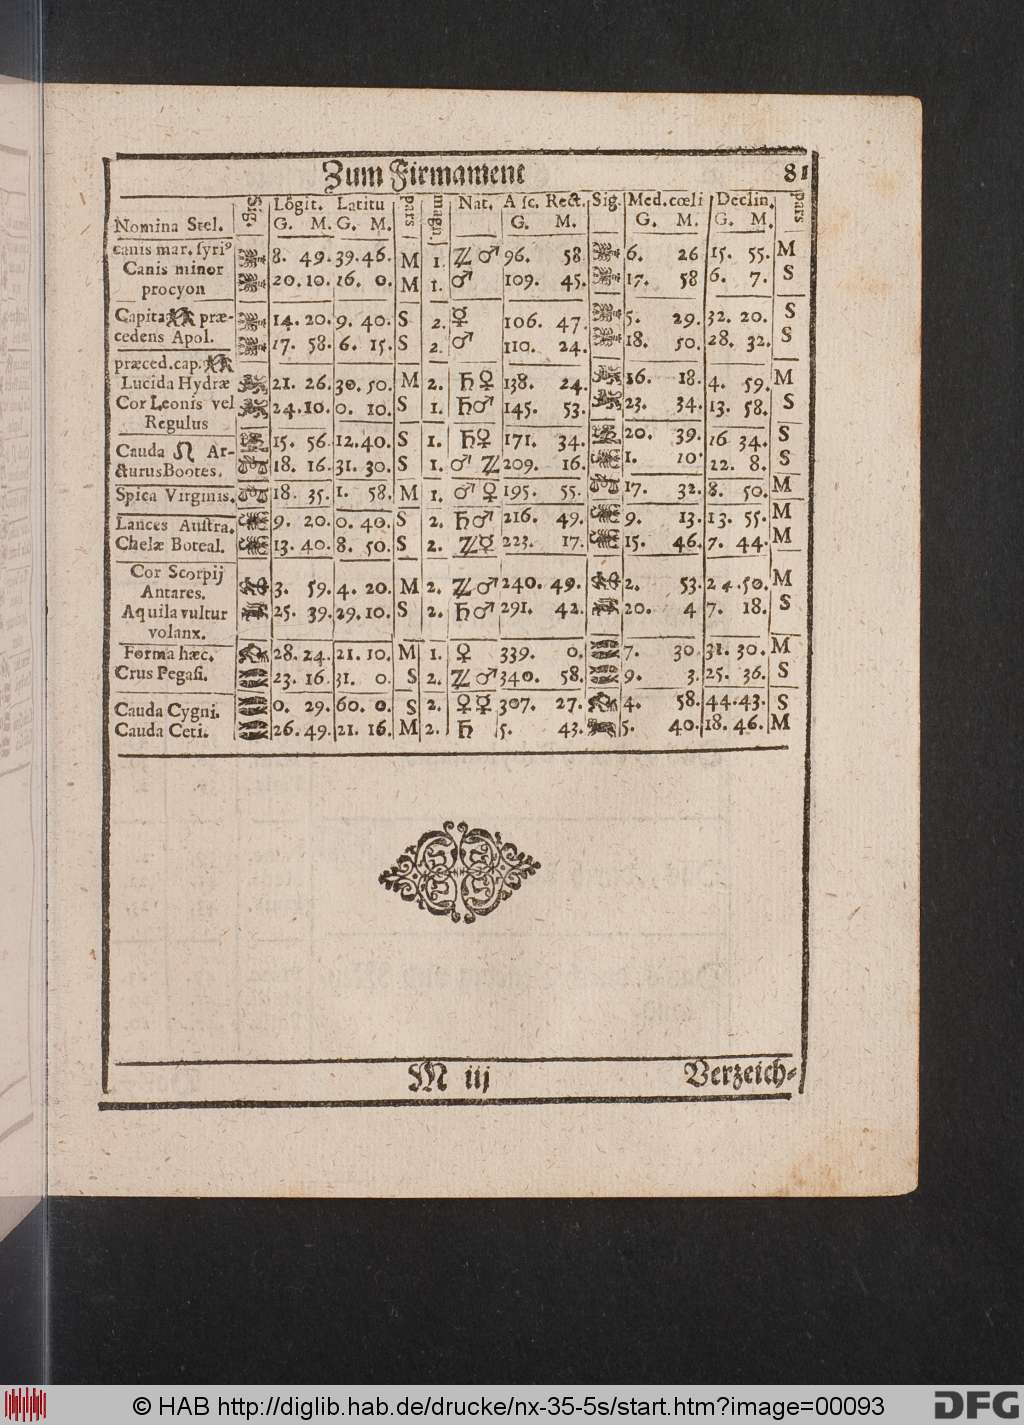 Zum Firmament 81
Nomina Stel. Sig. Lõgit. G. M. Latitu G. M. pars magn. Nat. Asc. Rect. G. M. Sig. Med.cœli G. M. Declin. G. M. pars
canis mar. syri⁹ 8. 49. 39. 46. M 1. ♃ ♂ 96. 58 6. 26 15. 55. M
Canis minor 20. 10. 16. 0. M 1. ♂ 109. 45. 17. 58 6. 7. S
procyon
Capita ♊ præ- 14. 20. 9. 40. S 2. ☿ 106. 47. 5. 29. 32. 20. S
cedens Apol. 17. 58. 6. 15. S 2. ♂ 110. 24. 18. 50. 28. 32. S
præced.cap. ♊
Lucida Hydræ 21. 26. 30. 50. M 2. ♄ ♀ 138. 24. 16. 18. 4. 59. M
Cor Leonis vel 24. 10. 0. 10. S 1. ♄ ♂ 145. 53. 23. 34. 13. 58. S
Regulus
Cauda ♌ Ar- 15. 56. 12. 40. S 1. ♄ ♀ 171. 34. 20. 39. 16 34. S
cturus Bootes. 18. 16. 31. 30. S 1. ♂ ♃ 209. 16. 1. 10. 22. 8. S
Spica Virginis. 18. 35. 1. 58. M 1. ♂ ♀ 195. 55. 17. 32. 8. 50. M
Lances Austra. 9. 20. 0. 40. S 2. ♄ ♂ 216. 49. 9. 13. 13. 55. M
Chelæ Boreal. 13. 40. 8. 50. S 2. ♃ ☿ 223. 17. 15. 46. 7. 44. M
Cor Scorpij
Antares. 3. 59. 4. 20. M 2. ♃ ♂ 240. 49. 2. 53. 24. 50. M
Aquila vultur 25. 39. 29. 10. S 2. ♄ ♂ 291. 42. 20. 4 7. 18. S
volanx.
Forma hæc. 28. 24. 21. 10. M 1. ♀ 339. 0. 7. 30 31. 30. M
Crus Pegasi. 23. 16. 31. 0. S 2. ♃ ♂ 340. 58. 9. 3. 25. 36. S
Cauda Cygni. 0. 29. 60. 0. S 2. ♀ ☿ 307. 27. 4. 58. 44. 43. S
Cauda Ceti. 26. 49. 21. 16. M 2. ♄ 5. 43. 5. 40. 18. 46. M
M iij Verzeich-
© HAB http://diglib.hab.de/drucke/nx-35-5s/start.htm?image=00093 DFG